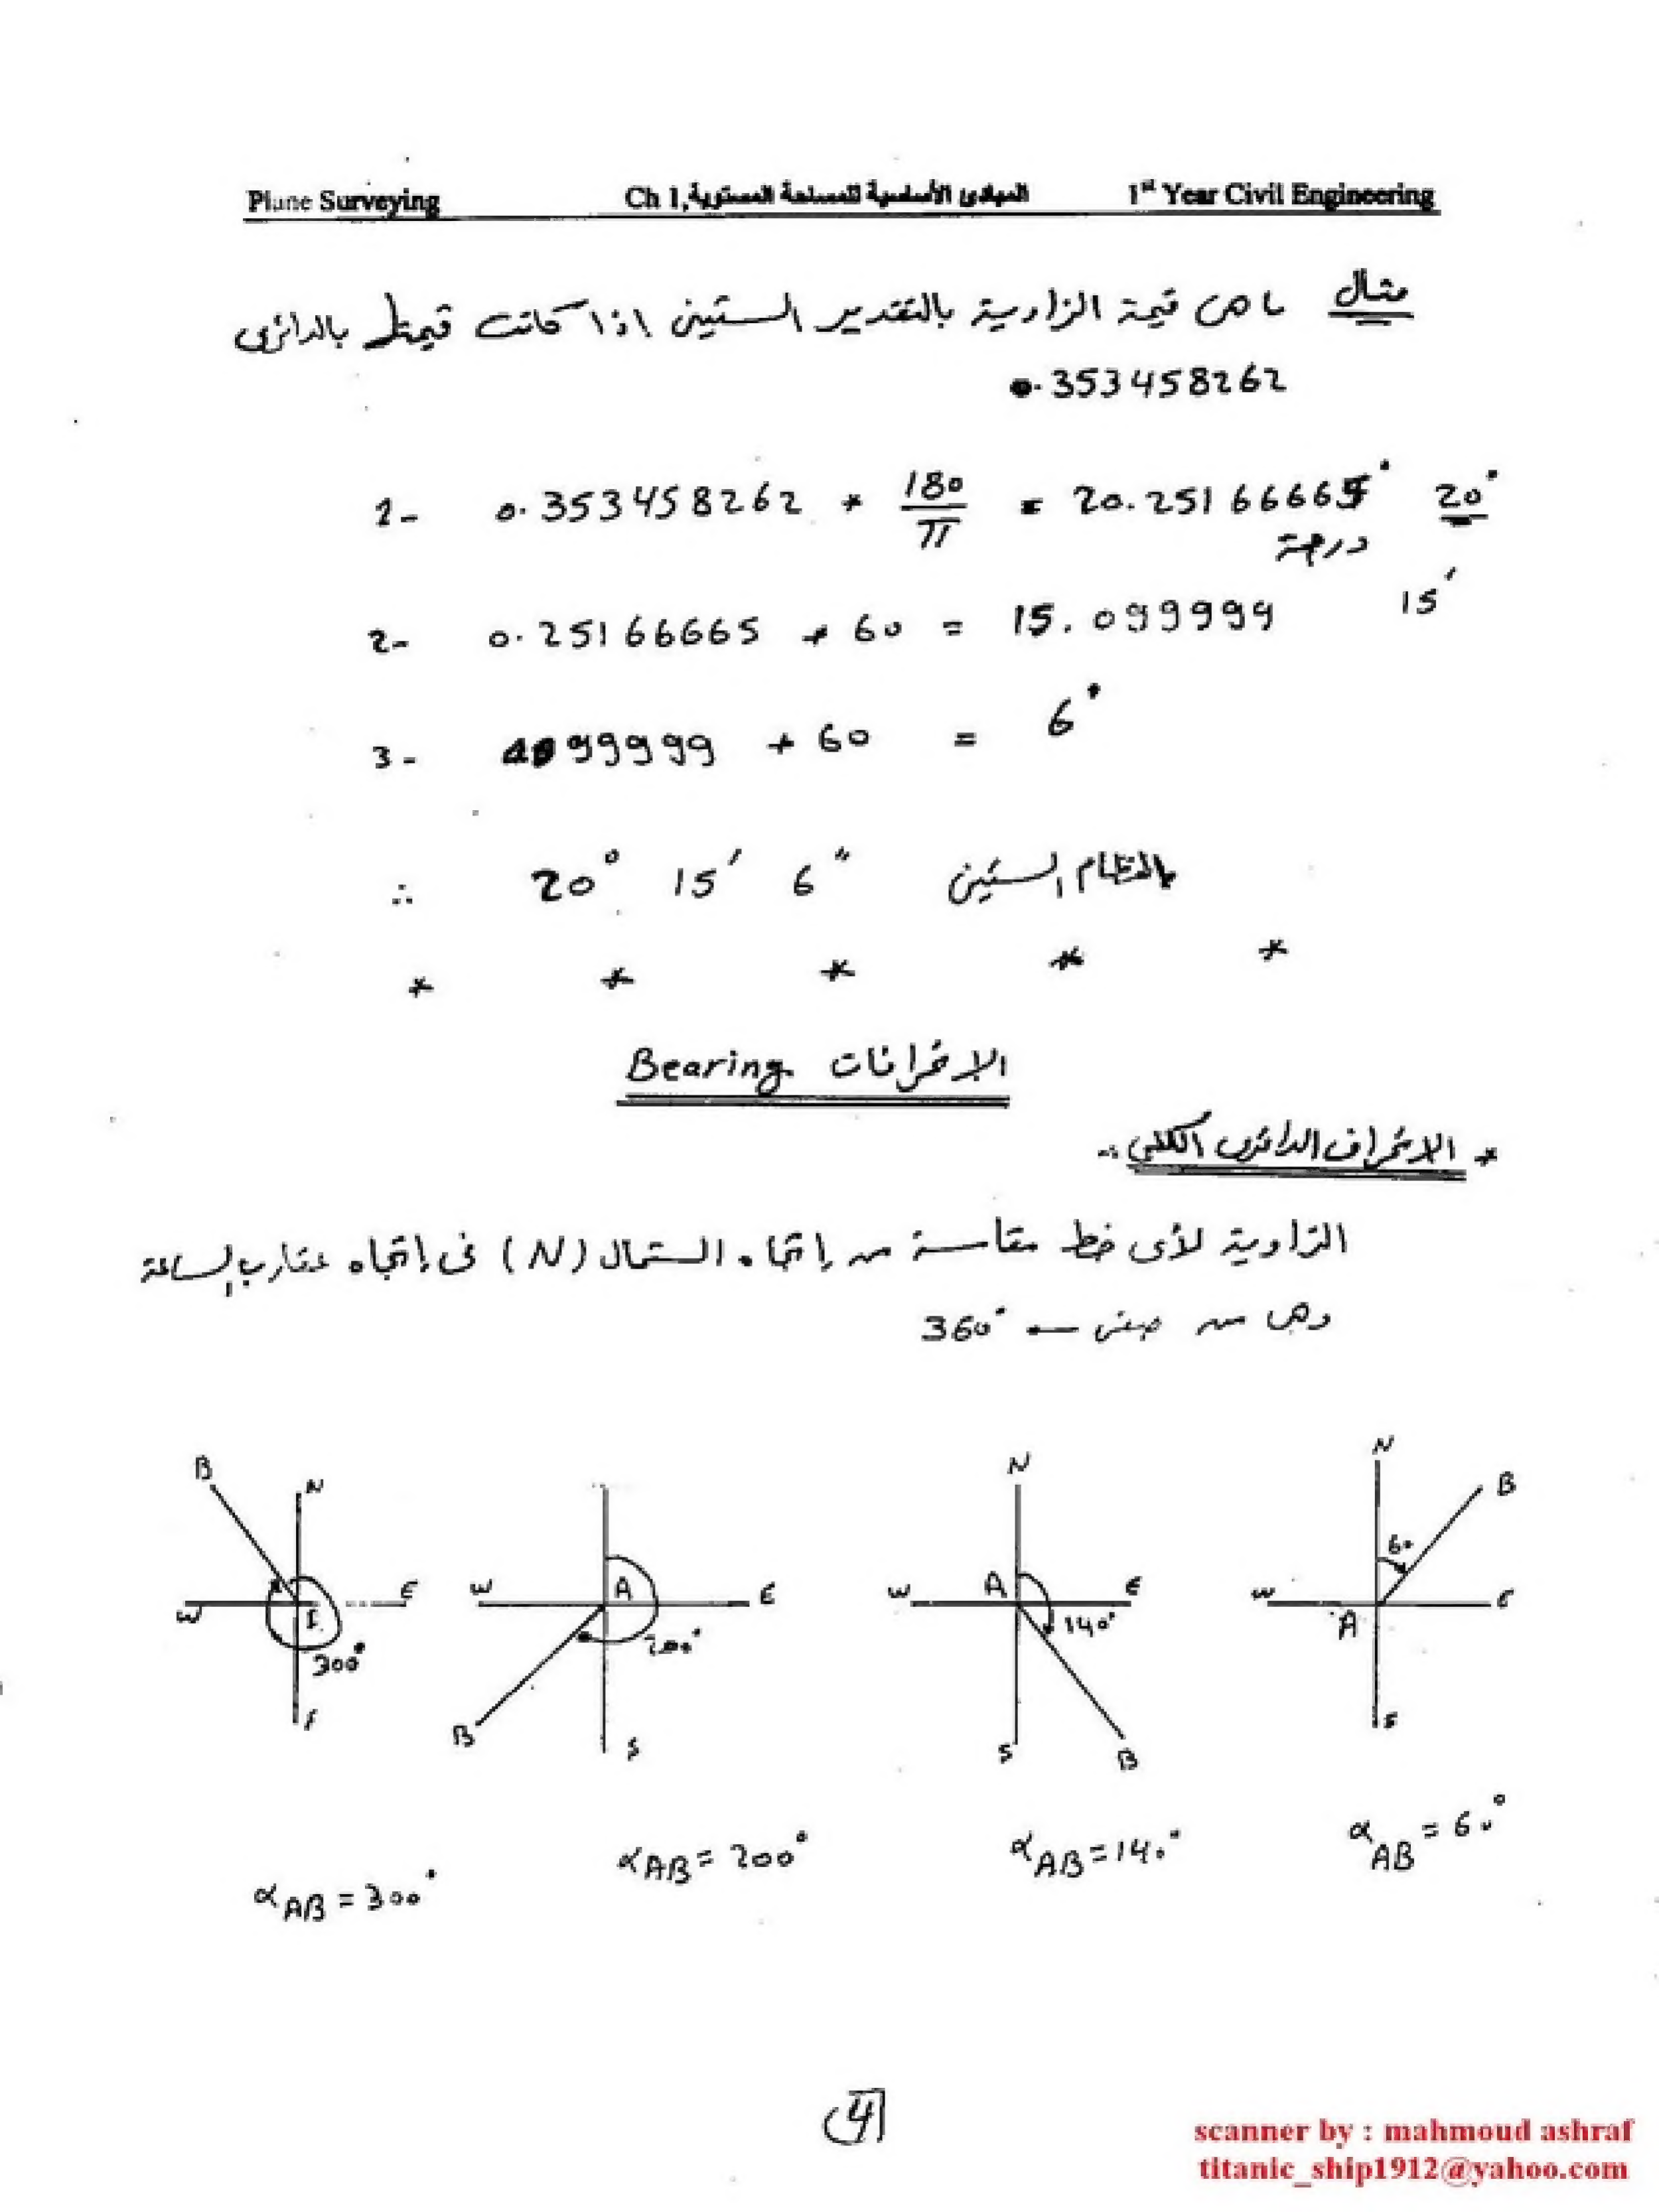 Plane Surveying Ch 1, المبادئ الأساسية للمساحة المستوية 1st Year Civil Engineering
مثال ماهى قيمة الزاوية بالتقدير الستينى اذا كانت قيمتها بالدائرى
0.353458262
1- 0.353458262 * 180/π = 20.25166665° 20°
درجة
2- 0.25166665 * 60 = 15.099999 15'
3- 099999 * 60 = 6"
∴ 20° 15' 6" بالنظام الستينى
* * * * *
الانحرافات Bearing
* الانحراف الدائرى الكلى :-
الزاوية لأى خط مقاسة من إتجاه الشمال (N) فى إتجاه عقارب الساعة
وهى من صفر ← 360°
B N W E 300°
A W E 200° B S
N A W E 140° S B
N B 60 W E A S
αAB = 300° αAB = 200° αAB = 140° αAB = 60°
4
scanner by : mahmoud ashraf
titanic_ship1912@yahoo.com